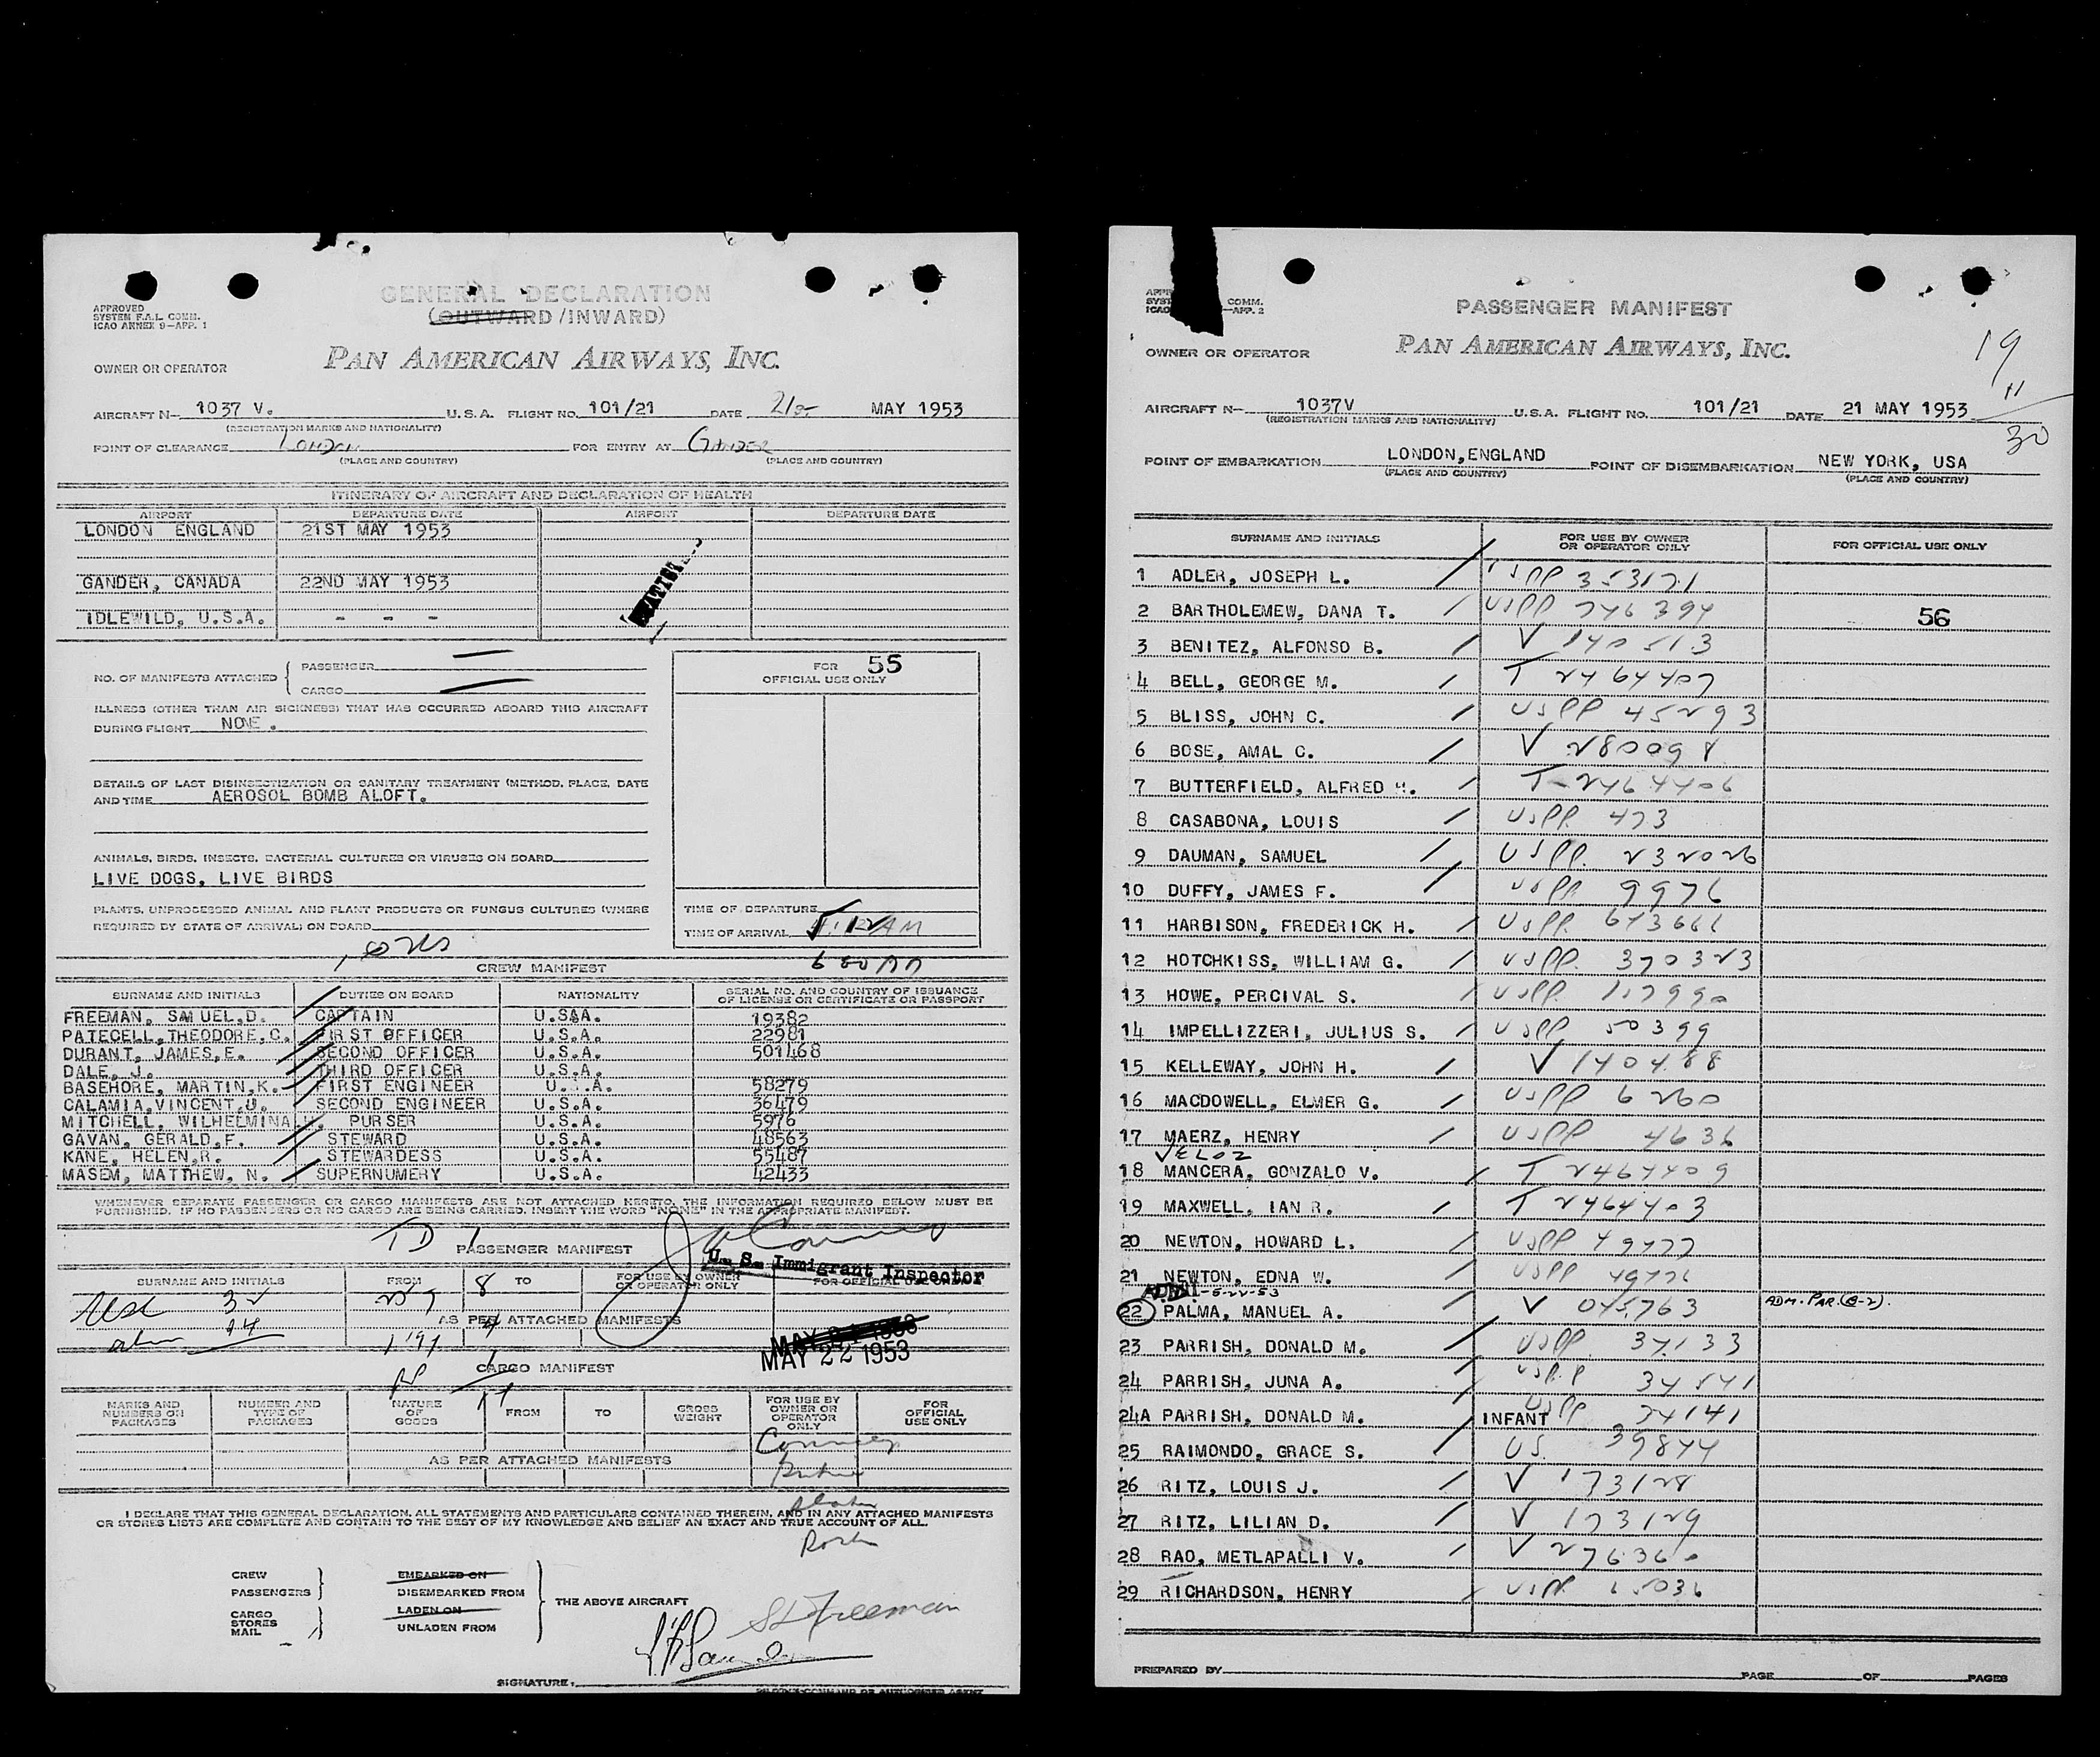 GENERAL DECLARATION
(OUTWARD/INWARD)
APPROVED
SYSTEM F.A.L. COMM.
ICAO ANNEX 9—APP. 1
PAN AMERICAN AIRWAYS, INC.
OWNER OR OPERATOR
AIRCRAFT N— 1037 V. U.S.A. FLIGHT NO. 101/21 DATE 21st MAY 1953
(REGISTRATION MARKS AND NATIONALITY)
POINT OF CLEARANCE London FOR ENTRY AT GANDER
(PLACE AND COUNTRY) (PLACE AND COUNTRY)
ITINERARY OF AIRCRAFT AND DECLARATION OF HEALTH
AIRPORT DEPARTURE DATE AIRPORT DEPARTURE DATE
LONDON ENGLAND 21ST MAY 1953
GANDER, CANADA 22ND MAY 1953
IDLEWILD, U.S.A. - - -
NO. OF MANIFESTS ATTACHED { PASSENGER
CARGO
FOR 55
OFFICIAL USE ONLY
ILLNESS (OTHER THAN AIR SICKNESS) THAT HAS OCCURRED ABOARD THIS AIRCRAFT
DURING FLIGHT NONE.
DETAILS OF LAST DISINSECTIZATION OR SANITARY TREATMENT (METHOD, PLACE, DATE
AND TIME AEROSOL BOMB ALOFT.
ANIMALS, BIRDS, INSECTS, BACTERIAL CULTURES OR VIRUSES ON BOARD
LIVE DOGS, LIVE BIRDS
PLANTS, UNPROCESSED ANIMAL AND PLANT PRODUCTS OR FUNGUS CULTURES (WHERE
REQUIRED BY STATE OF ARRIVAL) ON BOARD
TIME OF DEPARTURE
TIME OF ARRIVAL
CREW MANIFEST
SURNAME AND INITIALS DUTIES ON BOARD NATIONALITY SERIAL NO. AND COUNTRY OF ISSUANCE
OF LICENSE OR CERTIFICATE OR PASSPORT
FREEMAN, SAMUEL,D. CAPTAIN U.S.A. 19382
PATECELL,THEODORE,C. FIRST OFFICER U.S.A. 22981
DURANT, JAMES,E. SECOND OFFICER U.S.A. 501468
DALE, J. THIRD OFFICER U.S.A.
BASEHORE, MARTIN,K. FIRST ENGINEER U. .A. 58279
CALAMIA,VINCENT,J. SECOND ENGINEER U.S.A. 36479
MITCHELL, WILHELMINA PURSER U.S.A. 5976
GAVAN, GERALD,F. STEWARD U.S.A. 48563
KANE, HELEN,R. STEWARDESS U.S.A. 55487
MASEM, MATTHEW, N. SUPERNUMERY U.S.A. 42433
WHENEVER SEPARATE PASSENGER OR CARGO MANIFESTS ARE NOT ATTACHED HERETO, THE INFORMATION REQUIRED BELOW MUST BE
FURNISHED. IF NO PASSENGERS OR NO CARGO ARE BEING CARRIED, INSERT THE WORD "NONE" IN THE APPROPRIATE MANIFEST.
TD 1
PASSENGER MANIFEST
U. S. Immigrant Inspector
SURNAME AND INITIALS FROM TO FOR USE BY OWNER
OR OPERATOR ONLY FOR OFFICIAL USE ONLY
AS PER ATTACHED MANIFESTS
MAY 21 1953
MAY 22 1953
CARGO MANIFEST
MARKS AND
NUMBERS ON
PACKAGES NUMBER AND
TYPE OF
PACKAGES NATURE
OF
GOODS FROM TO GROSS
WEIGHT FOR USE BY
OWNER OR
OPERATOR
ONLY FOR
OFFICIAL
USE ONLY
AS PER ATTACHED MANIFESTS
I DECLARE THAT THIS GENERAL DECLARATION, ALL STATEMENTS AND PARTICULARS CONTAINED THEREIN, AND IN ANY ATTACHED MANIFESTS
OR STORES LISTS ARE COMPLETE AND CONTAIN TO THE BEST OF MY KNOWLEDGE AND BELIEF AN EXACT AND TRUE ACCOUNT OF ALL.
CREW
PASSENGERS }
CARGO
STORES
MAIL
EMBARKED ON
DISEMBARKED FROM
LADEN ON
UNLADEN FROM
THE ABOVE AIRCRAFT
SD Freeman
SIGNATURE
PASSENGER MANIFEST
COMM.
—APP. 2
PAN AMERICAN AIRWAYS, INC.
OWNER OR OPERATOR
19
11
30
AIRCRAFT N— 1037V U.S.A. FLIGHT NO. 101/21 DATE 21 MAY 1953
(REGISTRATION MARKS AND NATIONALITY)
POINT OF EMBARKATION LONDON,ENGLAND POINT OF DISEMBARKATION NEW YORK, USA
(PLACE AND COUNTRY) (PLACE AND COUNTRY)
SURNAME AND INITIALS FOR USE BY OWNER
OR OPERATOR ONLY FOR OFFICIAL USE ONLY
1 ADLER, JOSEPH L. USPP 353171
2 BARTHOLEMEW, DANA T. USPP 746394 56
3 BENITEZ, ALFONSO B. V 140513
4 BELL, GEORGE M. T 2464407
5 BLISS, JOHN C. USPP 45293
6 BOSE, AMAL C. V 280098
7 BUTTERFIELD, ALFRED H. T-2464406
8 CASABONA, LOUIS USPP 473
9 DAUMAN, SAMUEL USPP. 232026
10 DUFFY, JAMES F. USPP 9976
11 HARBISON, FREDERICK H. USPP. 673661
12 HOTCHKISS, WILLIAM G. USPP. 370323
13 HOWE, PERCIVAL S. USPP.
14 IMPELLIZZERI, JULIUS S. USPP 50399
15 KELLEWAY, JOHN H. V 140488
16 MACDOWELL, ELMER G. USPP 6260
17 MAERZ, HENRY USPP 4636
VELOZ
18 MANCERA, GONZALO V. T 2464409
19 MAXWELL, IAN R. T 2464403
20 NEWTON, HOWARD L. USPP 49477
21 NEWTON, EDNA W. USPP 49776
5-22-53
22 PALMA, MANUEL A. V 045763 ADM. PAR.(B-2).
23 PARRISH, DONALD M. USPP. 37133
24 PARRISH, JUNA A. USPP 34541
24A PARRISH, DONALD M. INFANT USPP 34141
25 RAIMONDO, GRACE S. US. 39844
26 RITZ, LOUIS J. V 173128
27 RITZ, LILIAN D. V 173129
28 RAO, METLAPALLI V. V 276360
29 RICHARDSON, HENRY USPP 15036
PREPARED BY PAGE OF PAGES